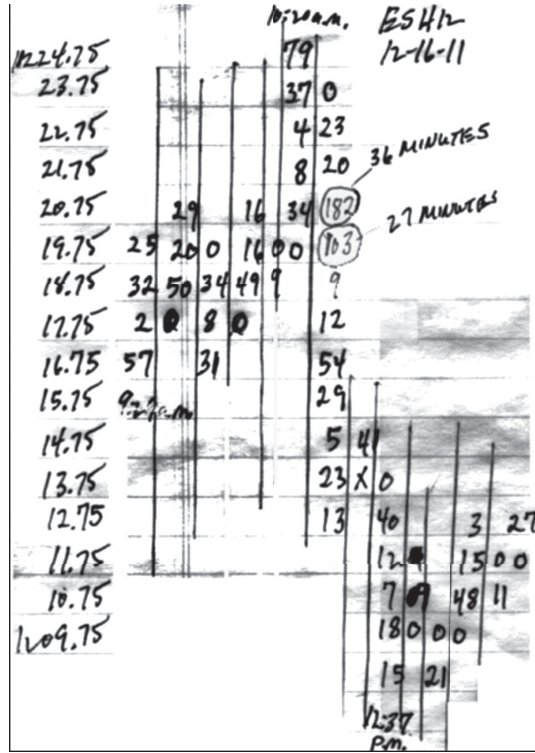 10:20 a.m. ESH12
1224.75 79 12-16-11
23.75 37 0
22.75 4 23
21.75 8 20 36 MINUTES
20.75 29 16 34 182 27 MINUTES
19.75 25 20 0 16 0 0 103
18.75 32 50 34 49 9 9
17.75 2 0 8 0 12
16.75 57 31 54
15.75 a.m. 29
14.75 5 41
13.75 23 X 0
12.75 13 40 3 27
11.75 12 15 0 0
10.75 7 9 48 11
1209.75 18 0 0 0
15 21
12:37
p.m.